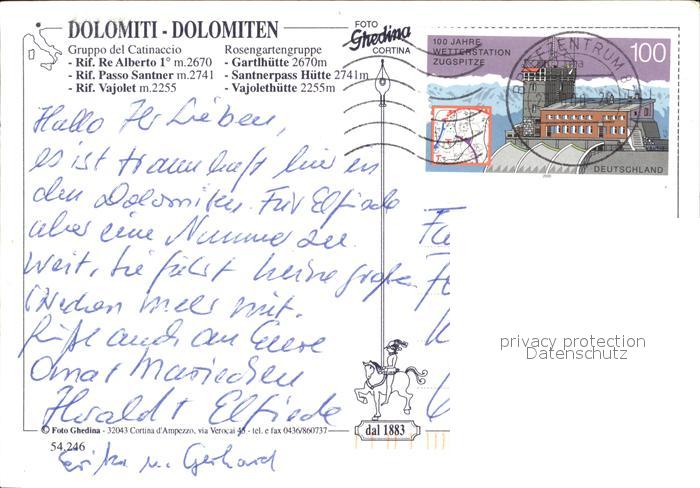 DOLOMITI - DOLOMITEN
Gruppo del Catinaccio
- Rif. Re Alberto 1° m.2670
- Rif. Passo Santner m.2741
- Rif. Vajolet m.2255
Rosengartengruppe
- Gartlhütte 2670m
- Santnerpass Hütte 2741m
- Vajolethütte 2255m
FOTO
Ghedina
CORTINA
100 JAHRE
WETTERSTATION
ZUGSPITZE
100
DEUTSCHLAND
BRIEFZENTRUM
Hallo Ihr Lieben,
es ist traumhaft hier in
den Dolomiten. Für Elfriede
aber eine Nummer zu
weit, sie fährt keine großen
Strecken mehr mit.
Grüße auch an Eure
Omas Mariechen
Harald + Elfriede
Erika u. Gerhard
Fa
privacy protection
Datenschutz
© Foto Ghedina - 32043 Cortina d'Ampezzo, via Verocai 45 - tel. e fax 0436/860737
dal 1883
54.246